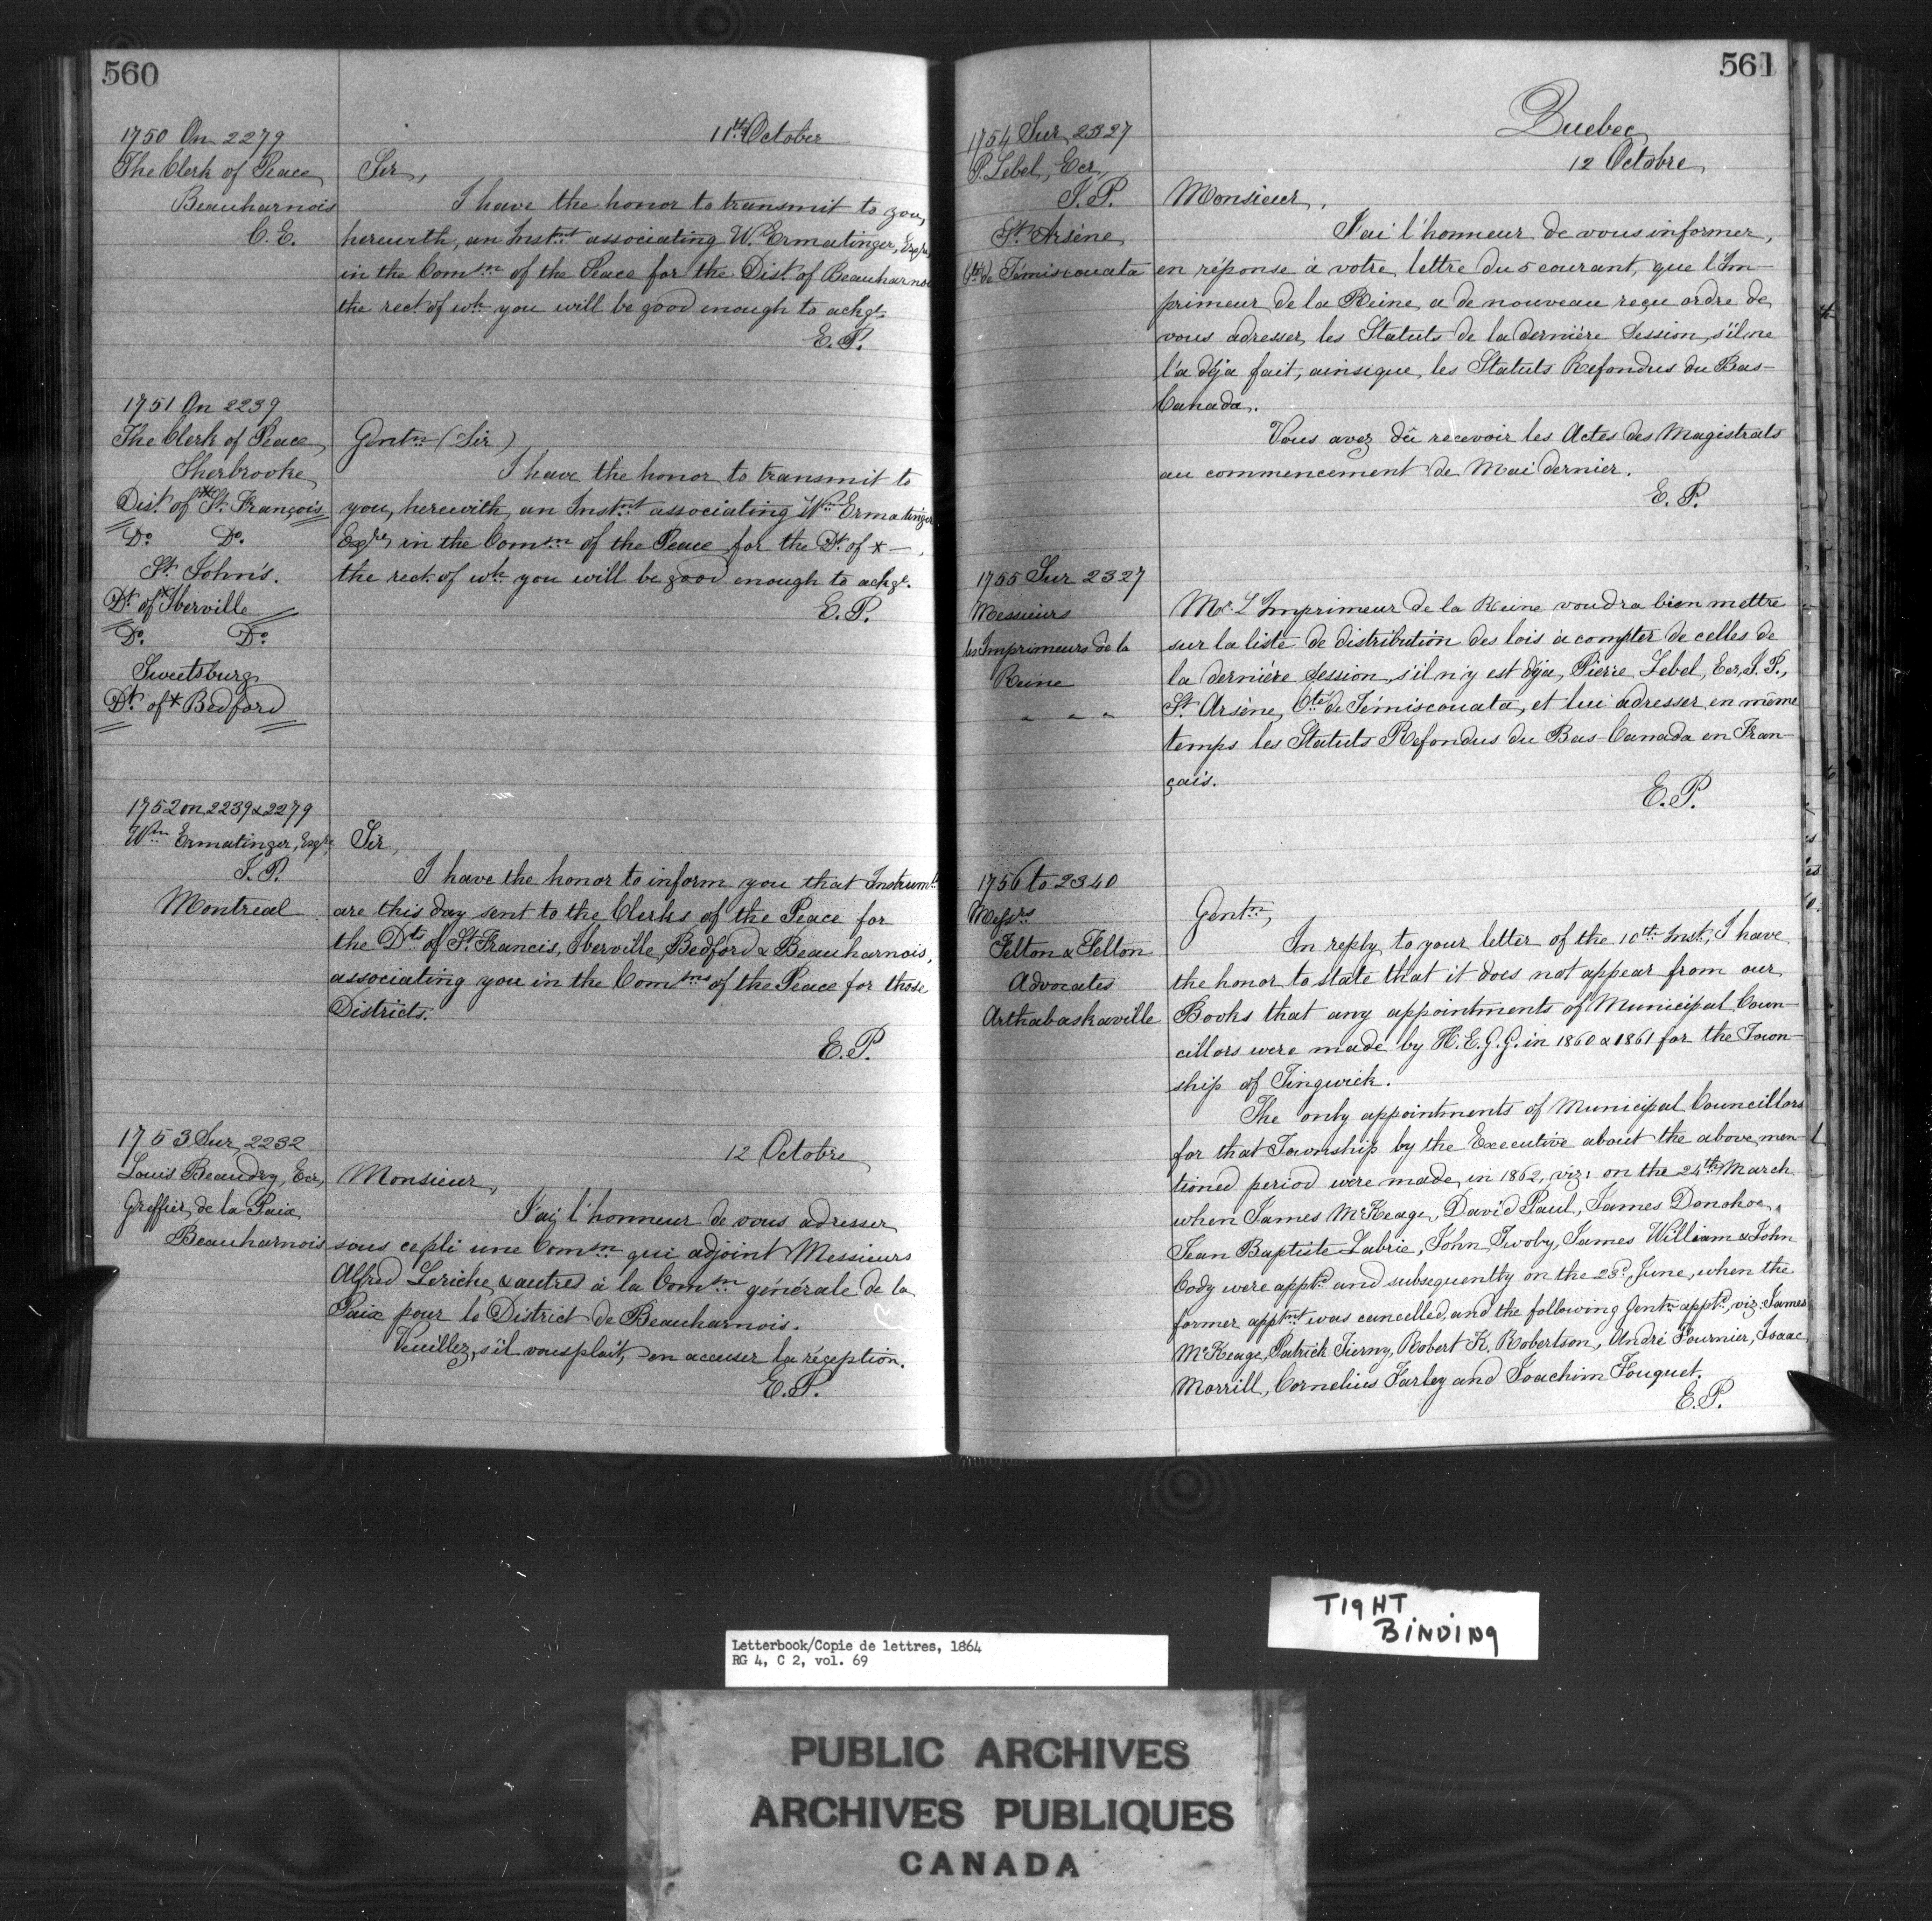 560
11th October
1750 On 2279
The Clerk of Peace
Beauharnois
C. E.
Sir,
I have the honor to transmit to you,
herewith, an Instmt associating W. Ermatinger, Esqre,
in the Comsn of the Peace for the Dist. of Beauharnois
the rect. of wh. you will be good enough to ackge.
E. P.
1751 On 2239
The Clerk of Peace
Sherbrooke
Dist. of *St. François
Do. Do.
St. John's.
Dt. of *Iberville
Do. Do.
Sweetsburg
Dt. of * Bedford
Gentn (Sir)
I have the honor to transmit to
you, herewith, an Instmt associating Wm Ermatinger
Esqre, in the Comsn of the Peace for the Dt. of * —,
the rect. of wh. you will be good enough to ackge.
E. P.
1752 on 2239 & 2279
Wm Ermatinger, Esqre,
J. P.
Montreal
Sir,
I have the honor to inform you that Instrumts
are this day sent to the Clerks of the Peace for
the Dts of St. Francis, Iberville, Bedford & Beauharnois,
associating you in the Comsns of the Peace for those
Districts.
E. P.
1753 Sur 2232
Louis Beaudry, Ecr,
Greffier de la Paix
Beauharnois
12 Octobre
Monsieur,
J'ai l'honneur de vous adresser
sous ce pli une Comsn qui adjoint Messieurs
Alfred Leriche & autres à la Comsn générale de la
Paix pour le District de Beauharnois.
Veuillez, s'il vous plait, en accuser la réception.
E. P.
561
Quebec
12 Octobre
1754 Sur 2327
P. Lebel, Ecr,
J. P.
St. Arsène
Cté de Témiscouata
Monsieur,
J'ai l'honneur de vous informer,
en réponse à votre lettre du 5 courant, que l'Im-
primeur de la Reine a de nouveau reçu ordre de
vous adresser les Statuts de la dernière Session, s'il ne
l'a déja fait, ainsi que les Statuts Refondus du Bas-
Canada.
Vous avez dû recevoir les Actes des Magistrats
au commencement de Mai dernier.
E. P.
1755 Sur 2327
Messieurs
les Imprimeurs de la
Reine
" " "
Mr. L'Imprimeur de la Reine voudra bien mettre
sur la liste de distribution des lois à compter de celles de
la dernière Session, s'il n'y est déja, Pierre Lebel, Ecr, J. P.,
St. Arsène, Cté de Témiscouata, et lui adresser en même
temps les Statuts Refondus du Bas-Canada en Fran-
çais.
E. P.
1756 to 2340
Messrs
Felton & Felton
Advocates
Arthabaskaville
Gentn,
In reply to your letter of the 10th Inst, I have
the honor to state that it does not appear from our
Books that any appointments of Municipal Coun-
cillors were made by H. E. G. G. in 1860 & 1861 for the Town-
ship of Tingwick.
The only appointments of Municipal Councillors
for that Township by the Executive about the above men-
tioned period were made in 1862, viz: on the 24th March
when James McKeage, David Paul, James Donohoe,
Jean Baptiste Labrie, John Twoby, James William & John
Cody were apptd and subsequently on the 23d June, when the
former apptmt was cancelled, and the following Gentn apptd, viz: James
McKeage, Patrick Tierny, Robert K. Robertson, André Fournier, Isaac
Morrill, Cornelius Farley and Joachim Fouquet.
E. P.
TIGHT
BINDING
Letterbook/Copie de lettres, 1864
RG 4, C 2, vol. 69
PUBLIC ARCHIVES
ARCHIVES PUBLIQUES
CANADA